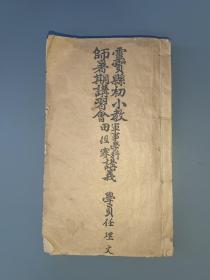 靈寶縣初小教
師暑期講習會
軍事學科
田徑賽
講義
學員任 文